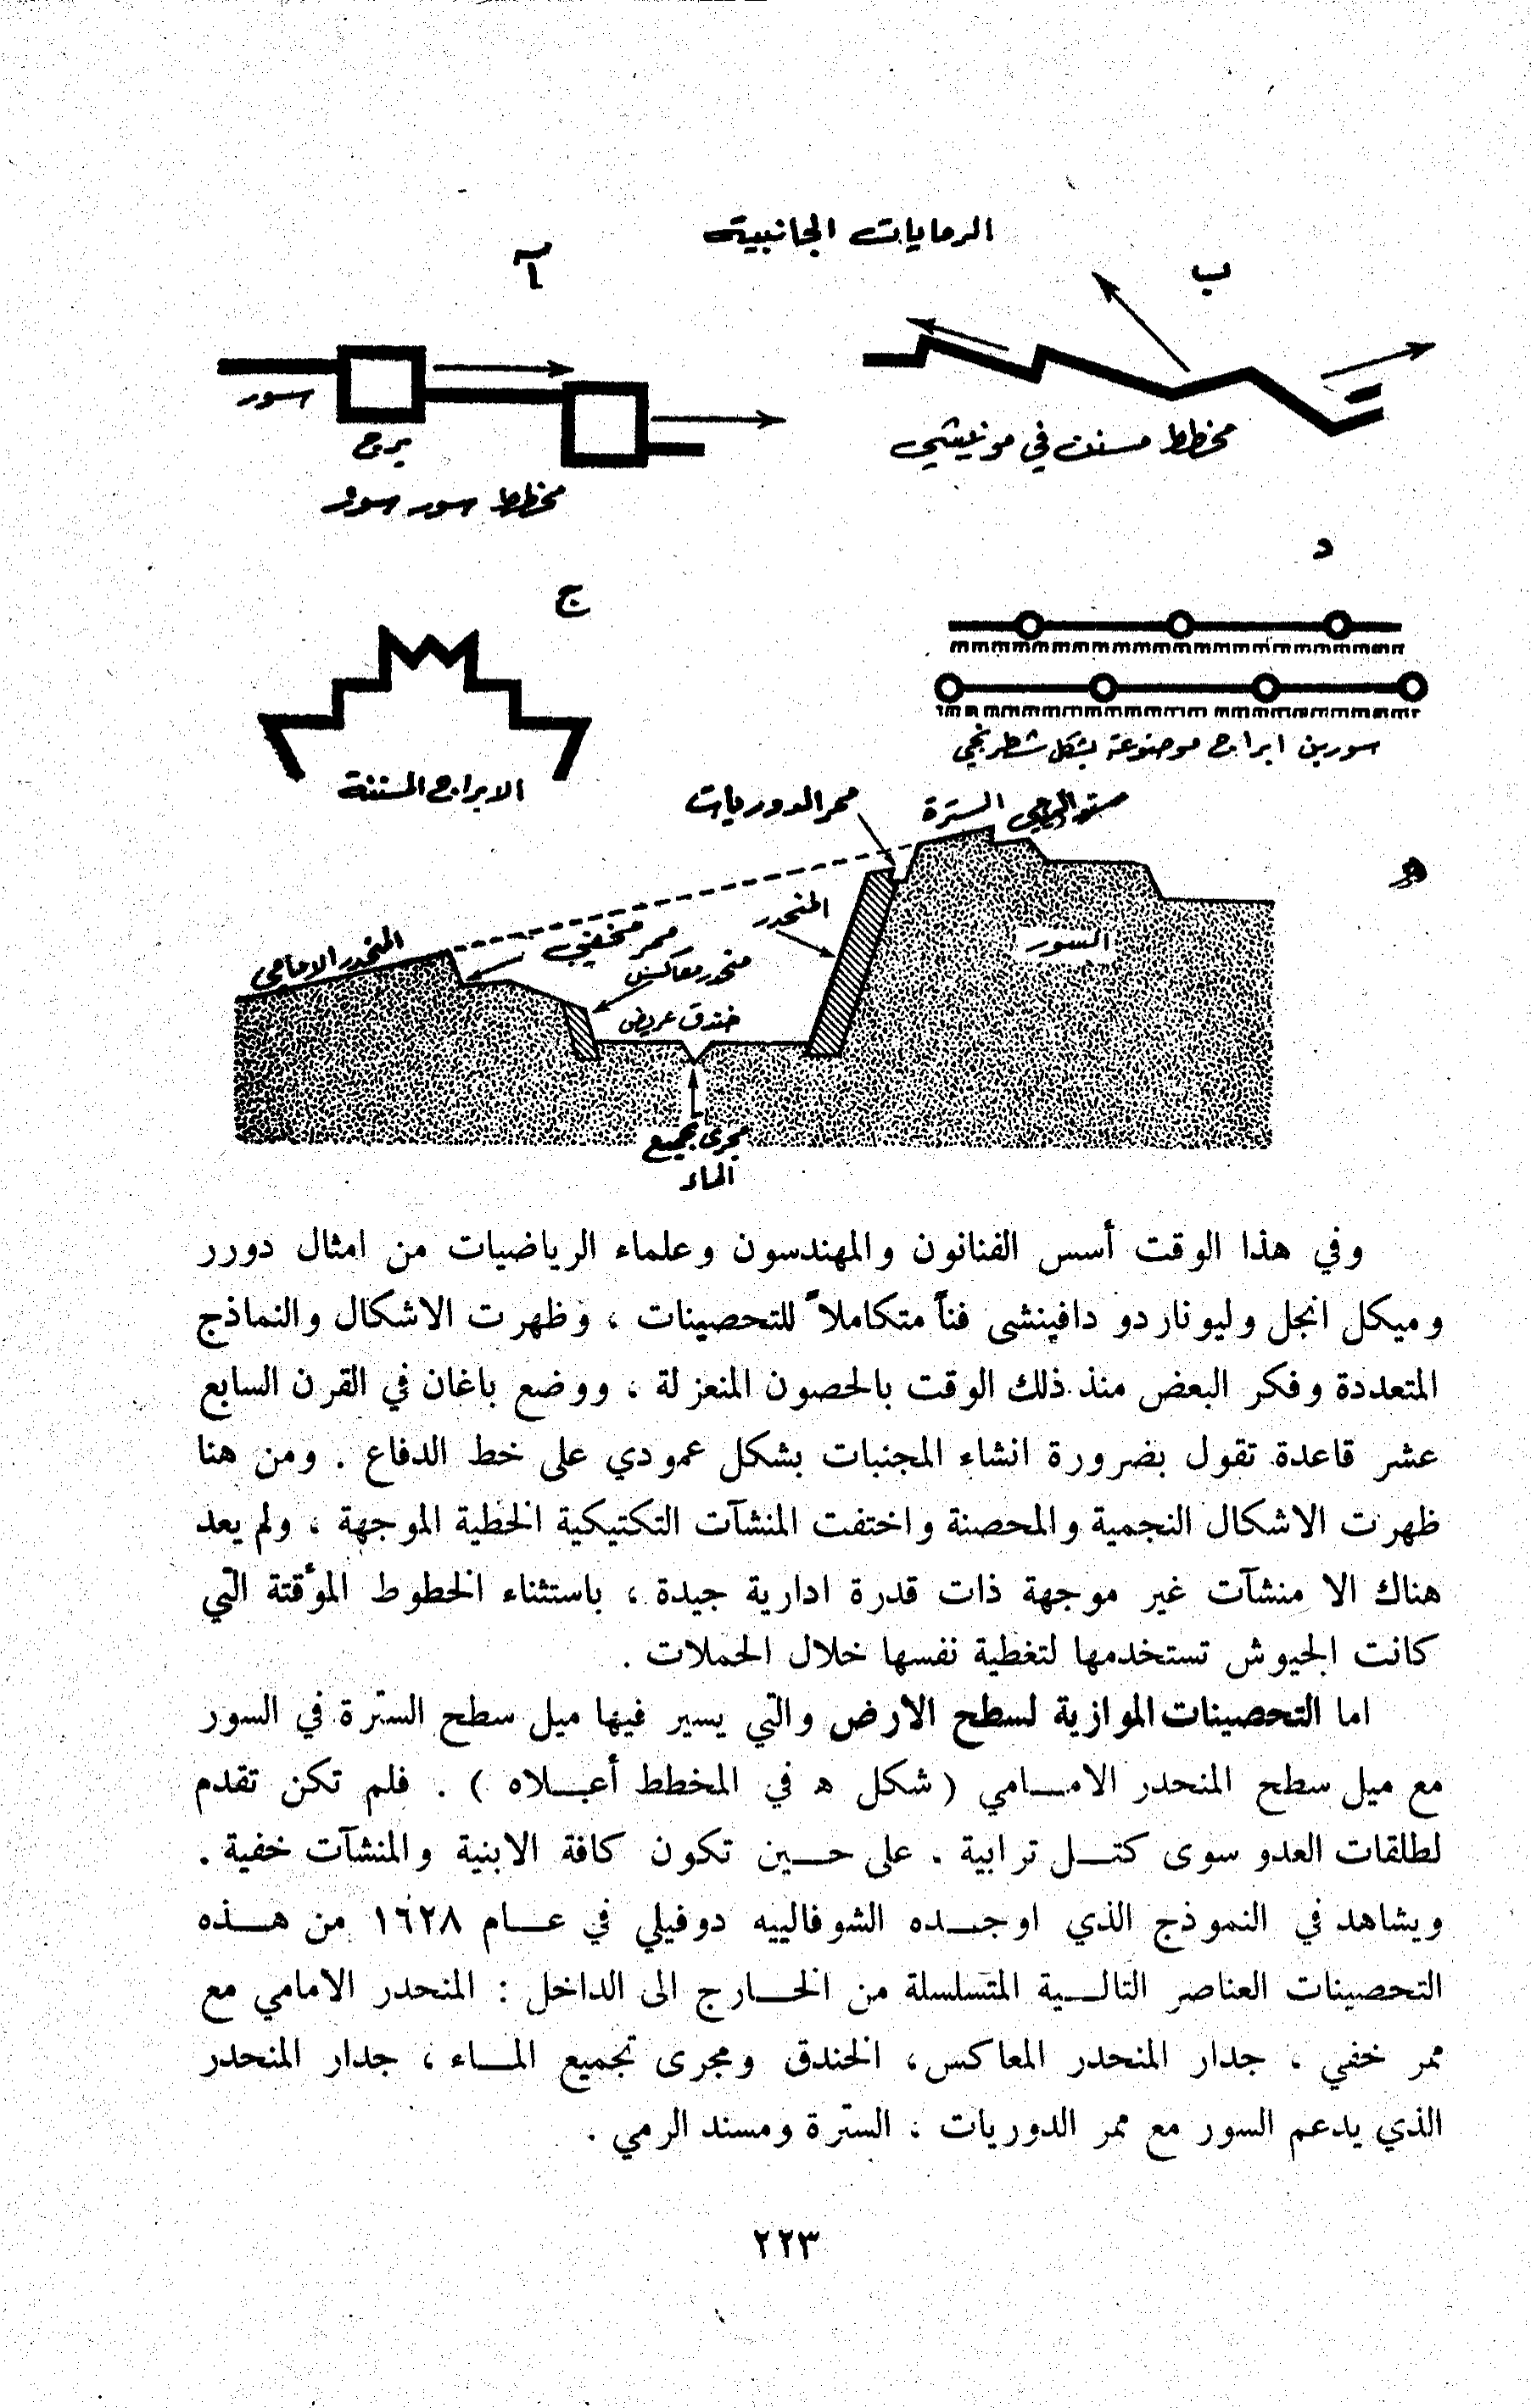 الرمايات الجانبية
ب
آ
سور
برج
مخطط مسنن في مونيشي
مخطط سور سوز
د
ج
سورين ابراج موضوعة بشكل شطرنجي
الابراج المسننة
ممر الدوريات
السترة
ه
المنحدر
السور
ممر مخفي
المنحدر الامامي
منحدر معاكس
خندق عريض
مجرى تجميع
الماء
وفي هذا الوقت أسس الفنانون والمهندسون وعلماء الرياضيات من امثال دورر
وميكل انجل وليوناردو دافينشى فناً متكاملاً للتحصينات ، وظهرت الاشكال والنماذج
المتعددة وفكر البعض منذ ذلك الوقت بالحصون المنعزلة ، ووضع باغان في القرن السابع
عشر قاعدة تقول بضرورة انشاء المجنبات بشكل عمودي على خط الدفاع . ومن هنا
ظهرت الاشكال النجمية والمحصنة واختفت المنشآت التكتيكية الخطية الموجهة ، ولم يعد
هناك الا منشآت غير موجهة ذات قدرة ادارية جيدة ، باستثناء الخطوط المؤقتة التي
كانت الجيوش تستخدمها لتغطية نفسها خلال الحملات .
اما التحصينات الموازية لسطح الارض والتي يسير فيها ميل سطح السترة في السور
مع ميل سطح المنحدر الامامي ( شكل ه في المخطط أعلاه ) . فلم تكن تقدم
لطلقات العدو سوى كتل ترابية . على حين تكون كافة الابنية والمنشآت خفية .
ويشاهد في النموذج الذي اوجده الشوفالييه دوفيلي في عام ١٦٢٨ من هذه
التحصينات العناصر التالية المتسلسلة من الخارج الى الداخل : المنحدر الامامي مع
ممر خفي ، جدار المنحدر المعاكس ، الخندق ومجرى تجميع الماء ، جدار المنحدر
الذي يدعم السور مع ممر الدوريات ، السترة ومسند الرمي .
٢٢٣